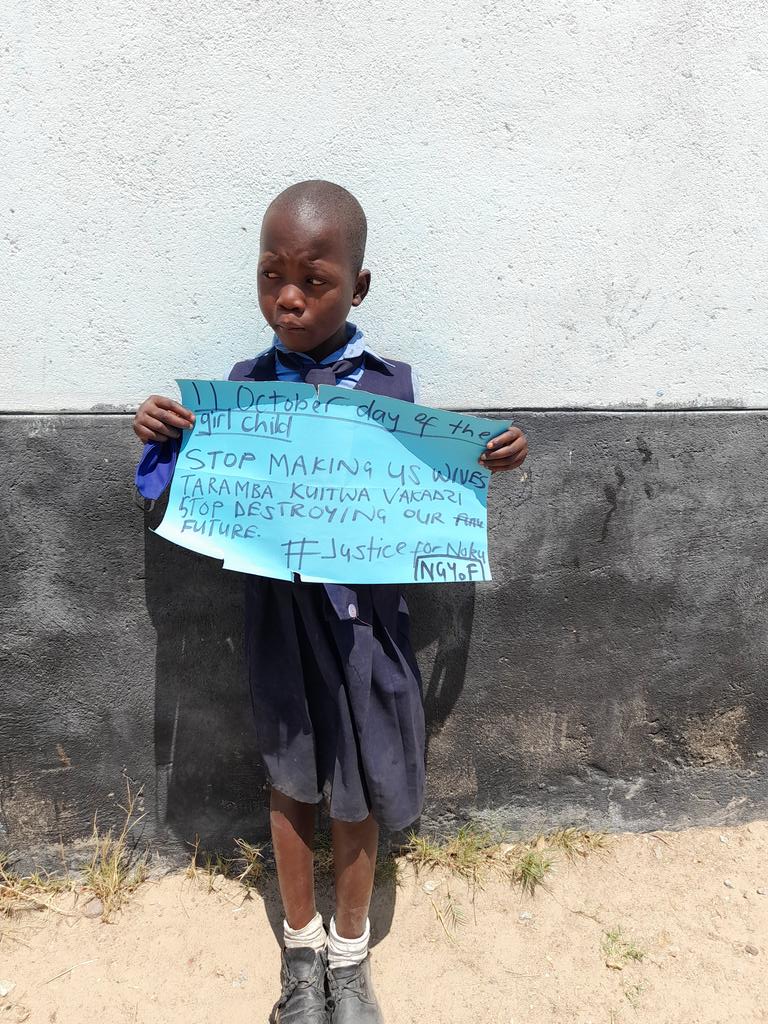 11 October day of the
girl child
STOP MAKING US WIVES
TARAMBA KUITWA VAKADZI
STOP DESTROYING OUR
FUTURE.
#Justice for Noku
NGYoF